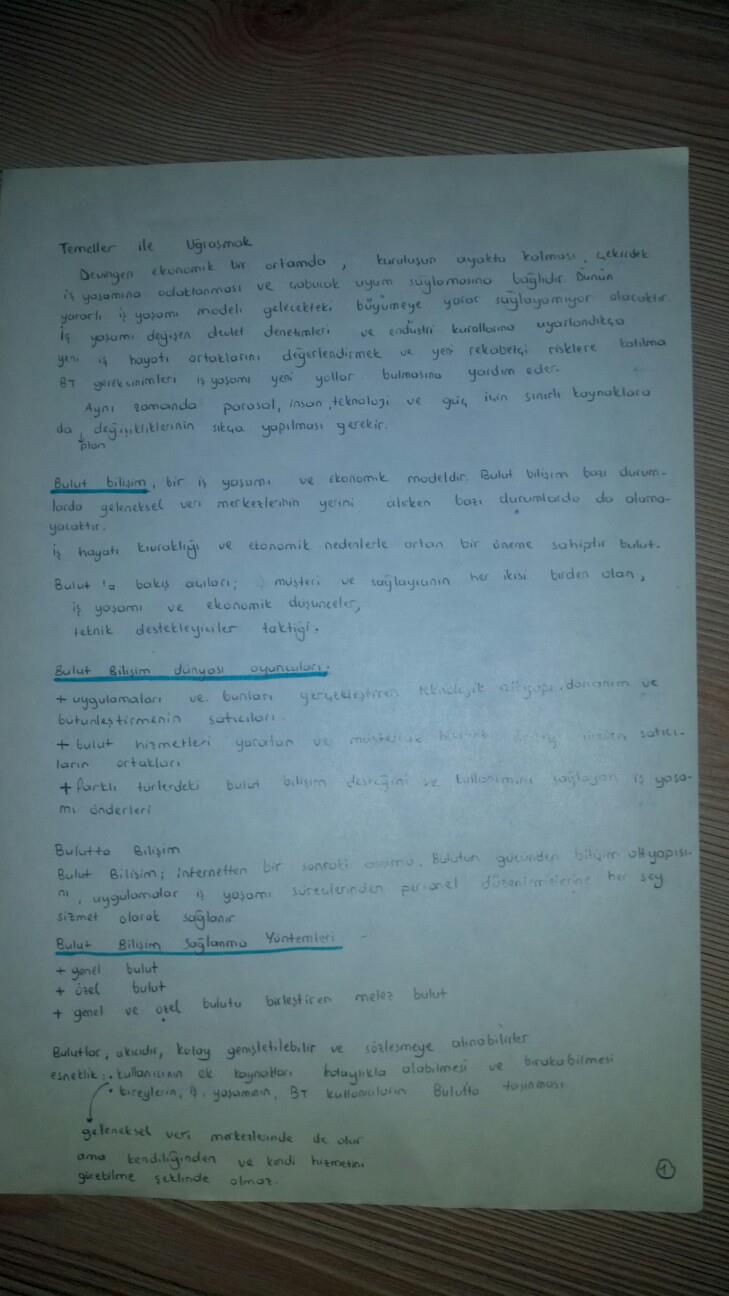 Temeller ile Uğraşmak
Devingen ekonomik bir ortamda, kuruluşun ayakta kalması, çekirdek
iş yaşamına odaklanması ve çabucak uyum sağlamasına bağlıdır. Dünün
yararlı iş yaşamı modeli gelecekteki büyümeye yarar sağlayamıyor olacaktır.
İş yaşamı değişen devlet denetimleri ve endüstri kurallarına uyarlandıkça
yeni iş hayatı ortaklarını değerlendirmek ve yeni rekabetçi risklere katılma
BT gereksinimleri iş yaşamı yeni yollar bulmasına yardım eder.
Aynı zamanda parasal, insan, teknoloji ve güç için sınırlı kaynaklara
da değişikliklerinin sıkça yapılması gerekir.
plan
Bulut bilişim, bir iş yaşamı ve ekonomik modeldir. Bulut bilişim bazı durum-
larda geleneksel veri merkezlerinin yerini alırken bazı durumlarda da alama-
yacaktır.
İş hayatı kıvraklığı ve ekonomik nedenlerle artan bir öneme sahiptir bulut.
Bulut 'a bakış açıları; müşteri ve sağlayıcının her ikisi birden olan,
iş yaşamı ve ekonomik düşünceler,
teknik destekleyiciler taktiği.
Bulut Bilişim dünyası oyuncuları:
+ uygulamaları ve bunları gerçekleştiren teknolojik altyapı, donanım ve
bütünleştirmenin satıcıları.
+ bulut hizmetleri yaratan ve satıcı-
ların ortakları
+ farklı türlerdeki bulut bilişim desteğini ve kullanımını sağlayan iş yaşa-
mı önderleri
Bulutta Bilişim
Bulut Bilişim; internetten bir sonraki aşama. Bulutun gücünden bilişim altyapısı-
nı, uygulamalar iş yaşamı süreçlerinden personel her şey
sizmet olarak sağlanır
Bulut Bilişim Sağlanma Yöntemleri
+ genel bulut
+ özel bulut
+ genel ve özel bulutu birleştiren melez bulut
Bulutlar, akıcıdır, kolay genişletilebilir ve sözleşmeye alınabilirler
esneklik: • kullanıcının ek kaynakları kolaylıkla alabilmesi ve bırakabilmesi
• bireylerin, iş yaşamının, BT kullanıcıların Bulutta taşınması
geleneksel veri merkezlerinde de olur
ama kendiliğinden ve kendi hizmetini
görebilme şeklinde olmaz.
1